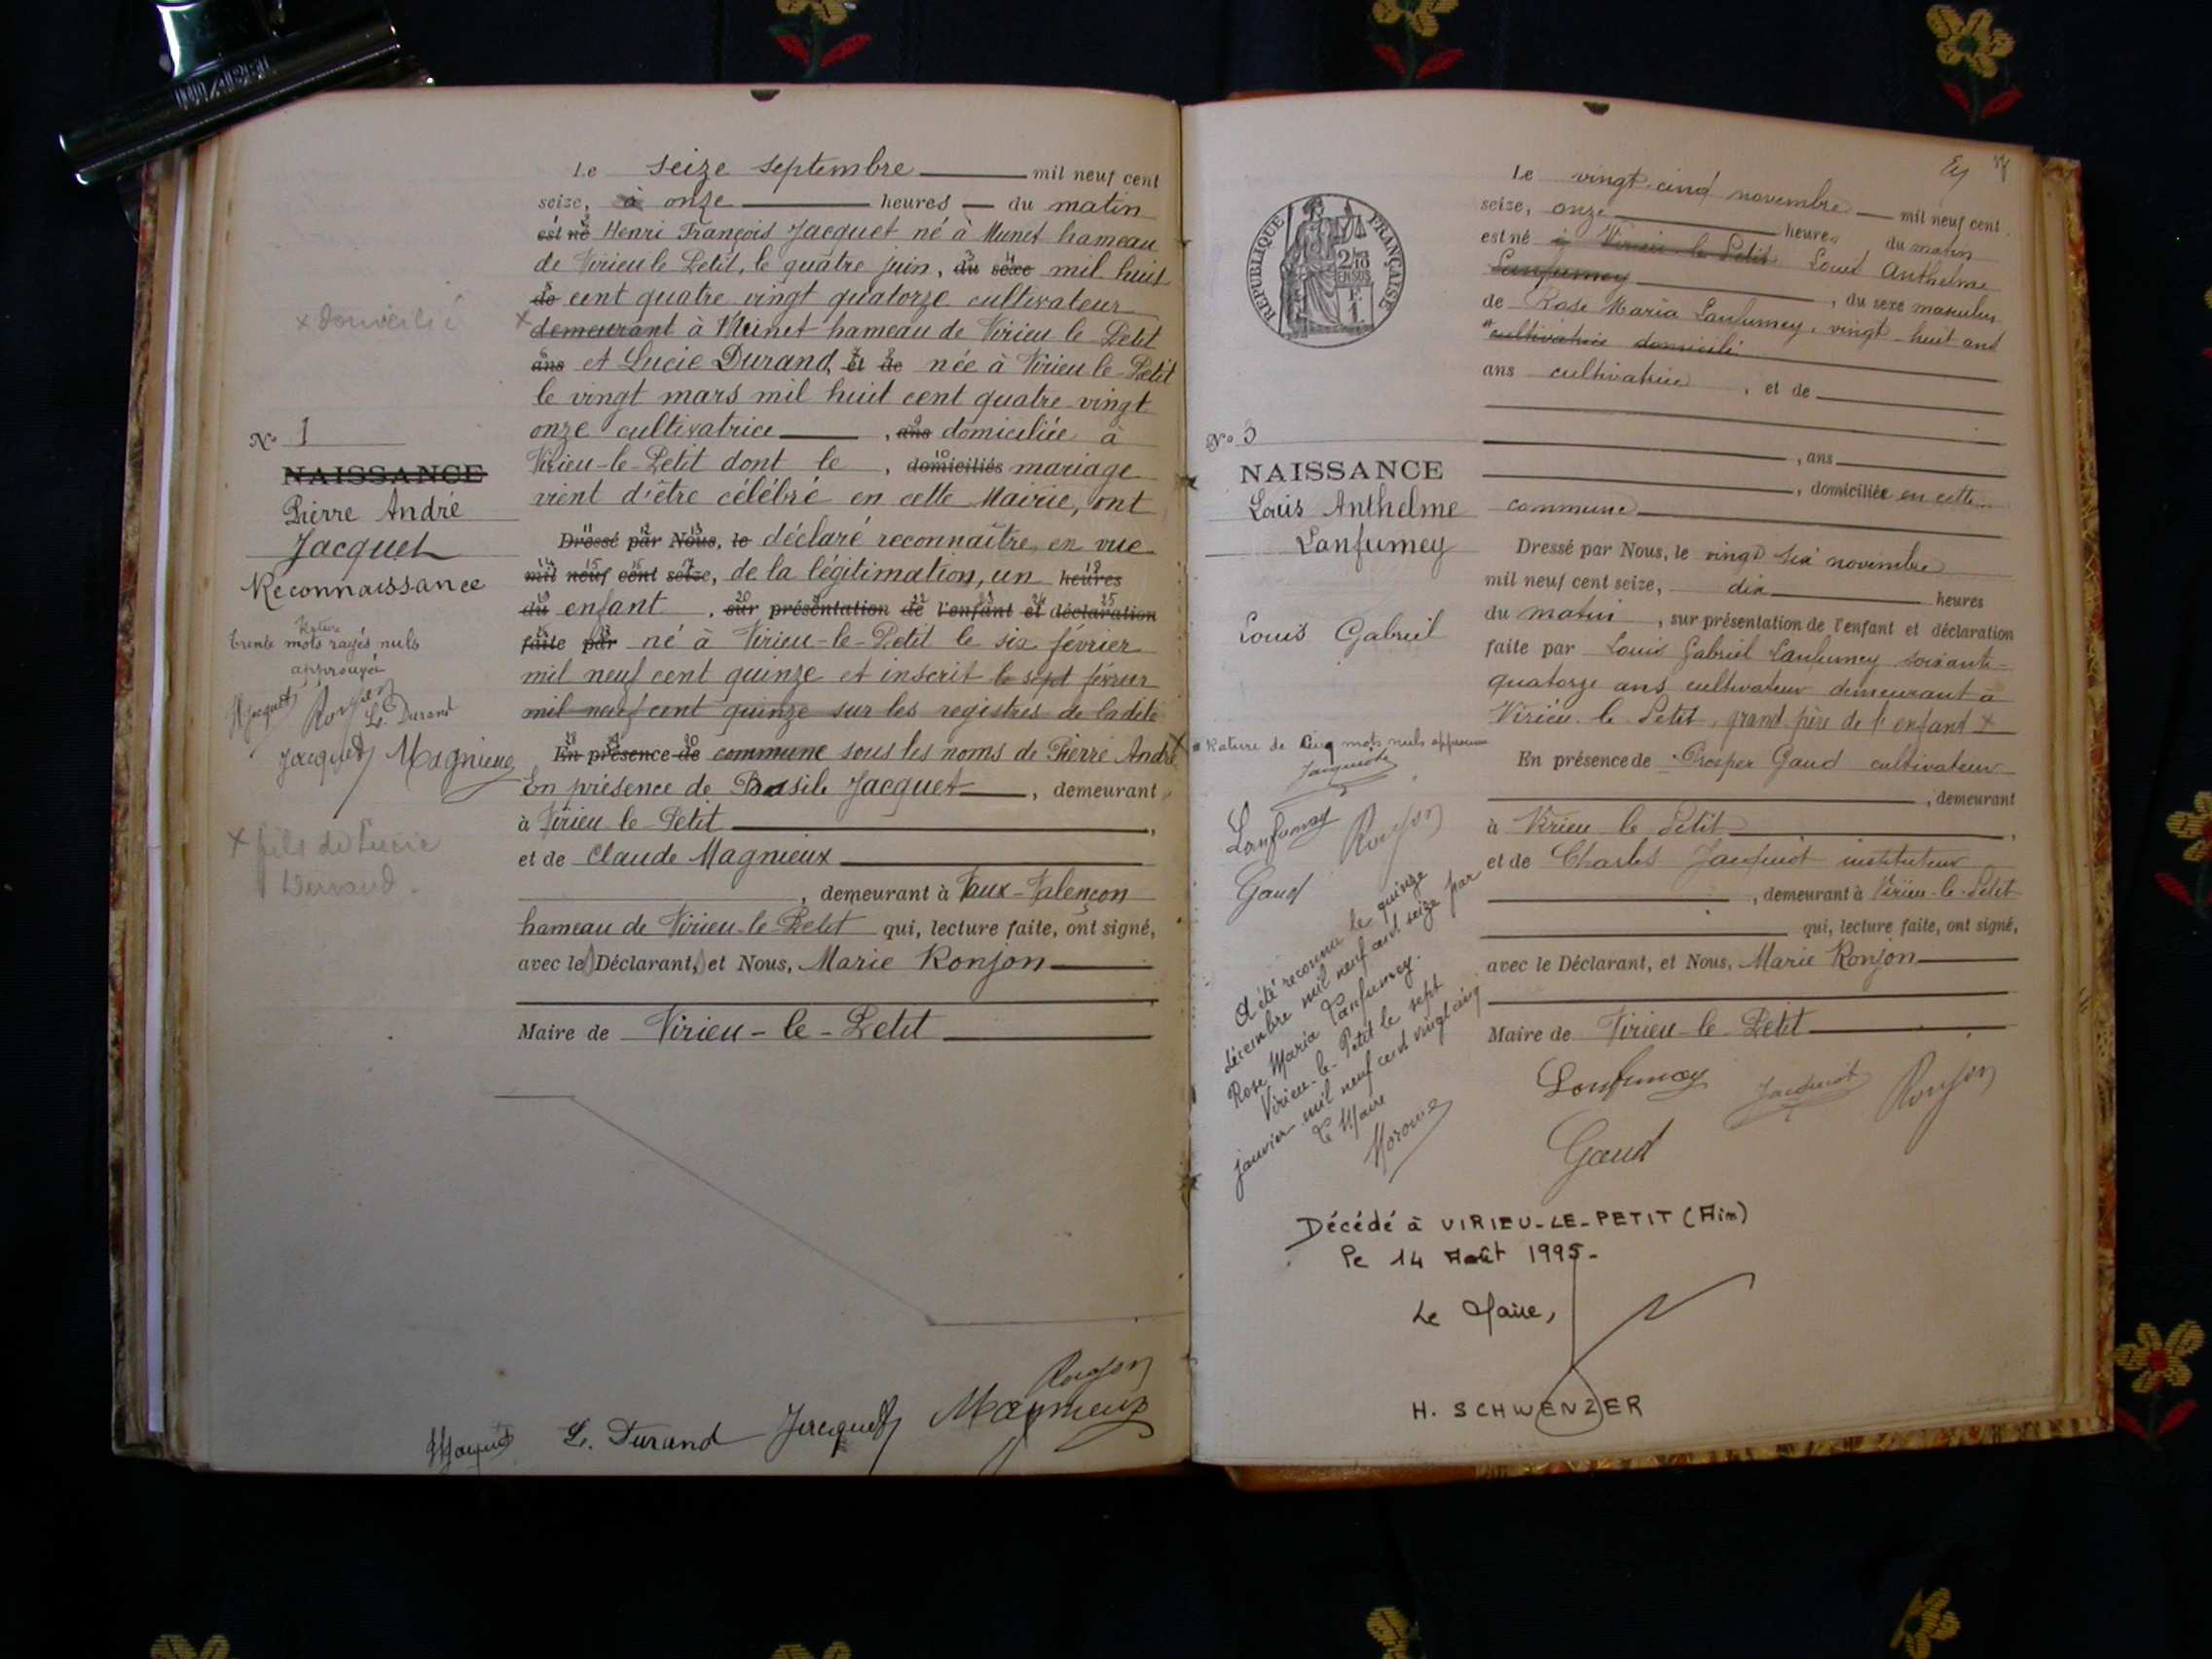 Le seize septembre mil neuf cent
seize, à onze heures du matin
est né Henri François Jacquet né à Munet hameau
de Virieu le Petit, le quatre juin, du sexe mil huit
de cent quatre vingt quatorze cultivateur
x demeurant à Munet hameau de Virieu le Petit
ans et Lucie Durand, et de née à Virieu le Petit
le vingt mars mil huit cent quatre-vingt
onze cultivatrice, ans domiciliée à
Virieu-le-Petit dont le, domiciliés mariage
vient d'être célébré en cette Mairie, ont
Dressé par Nous, le déclaré reconnaître, en vue
mil neuf cent seize, de la légitimation, un heures
du enfant, sur présentation de l'enfant et déclaration
faite par né à Virieu-le-Petit le six février
mil neuf cent quinze et inscrit le sept février
mil neuf cent quinze sur les registres de la dite
En présence de commune sous les noms de Pierre André x
En présence de Basile Jacquet, demeurant
à Virieu le Petit,
et de Claude Magnieux
, demeurant à Vaux-Valençon
hameau de Virieu-le-Petit qui, lecture faite, ont signé,
avec le Déclarant, et Nous, Marie Ronjon
Maire de Virieu-le-Petit
x domicilié
No 1
NAISSANCE
Pierre André
Jacquet
Reconnaissance
Rature
trente mots rayés nuls
approuvés
HJacquet Ronjon
L. Durand
Jacquet Magnieux
x fils de Lucie
Durand.
Ronjon
L. Durand Jacquet Magnieux
Le vingt-cinq novembre mil neuf cent
seize, onze heures du matin
est né à Virieu-le-Petit Louis Anthelme
Lanfumey, du sexe masculin
de Rose Maria Lanfumey, vingt-huit ans
cultivatrice domicilié
ans cultivatrice, et de
, ans
, domiciliée en cette
commune
Dressé par Nous, le vingt six novembre
mil neuf cent seize, dix heures
du matin, sur présentation de l'enfant et déclaration
faite par Louis Gabriel Lanfumey soixante-
quatorze ans cultivateur demeurant à
Virieu le Petit, grand père de l'enfant x
En présence de Prosper Gaud cultivateur
, demeurant
à Virieu le Petit,
et de Charles Jacquiot instituteur
, demeurant à Virieu-le-Petit
qui, lecture faite, ont signé,
avec le Déclarant, et Nous, Marie Ronjon
Maire de Virieu-le-Petit
Lanfumey Jacquiot Ronjon
Gaud
RÉPUBLIQUE FRANÇAISE
2/10
EN SUS
1 F.
No 3
NAISSANCE
Louis Anthelme
Lanfumey
Louis Gabriel
Rature de cinq mots nuls
Jacquiot
Lanfumey Ronjon
Gaud
A été reconnu le quinze
décembre mil neuf cent seize par
Rose Maria Lanfumey.
Virieu-le-Petit le sept
janvier mil neuf cent vingt cinq
Le Maire
Décédé à VIRIEU-LE-PETIT (Ain)
le 14 Août 1995-
Le Maire,
H. SCHWENZER